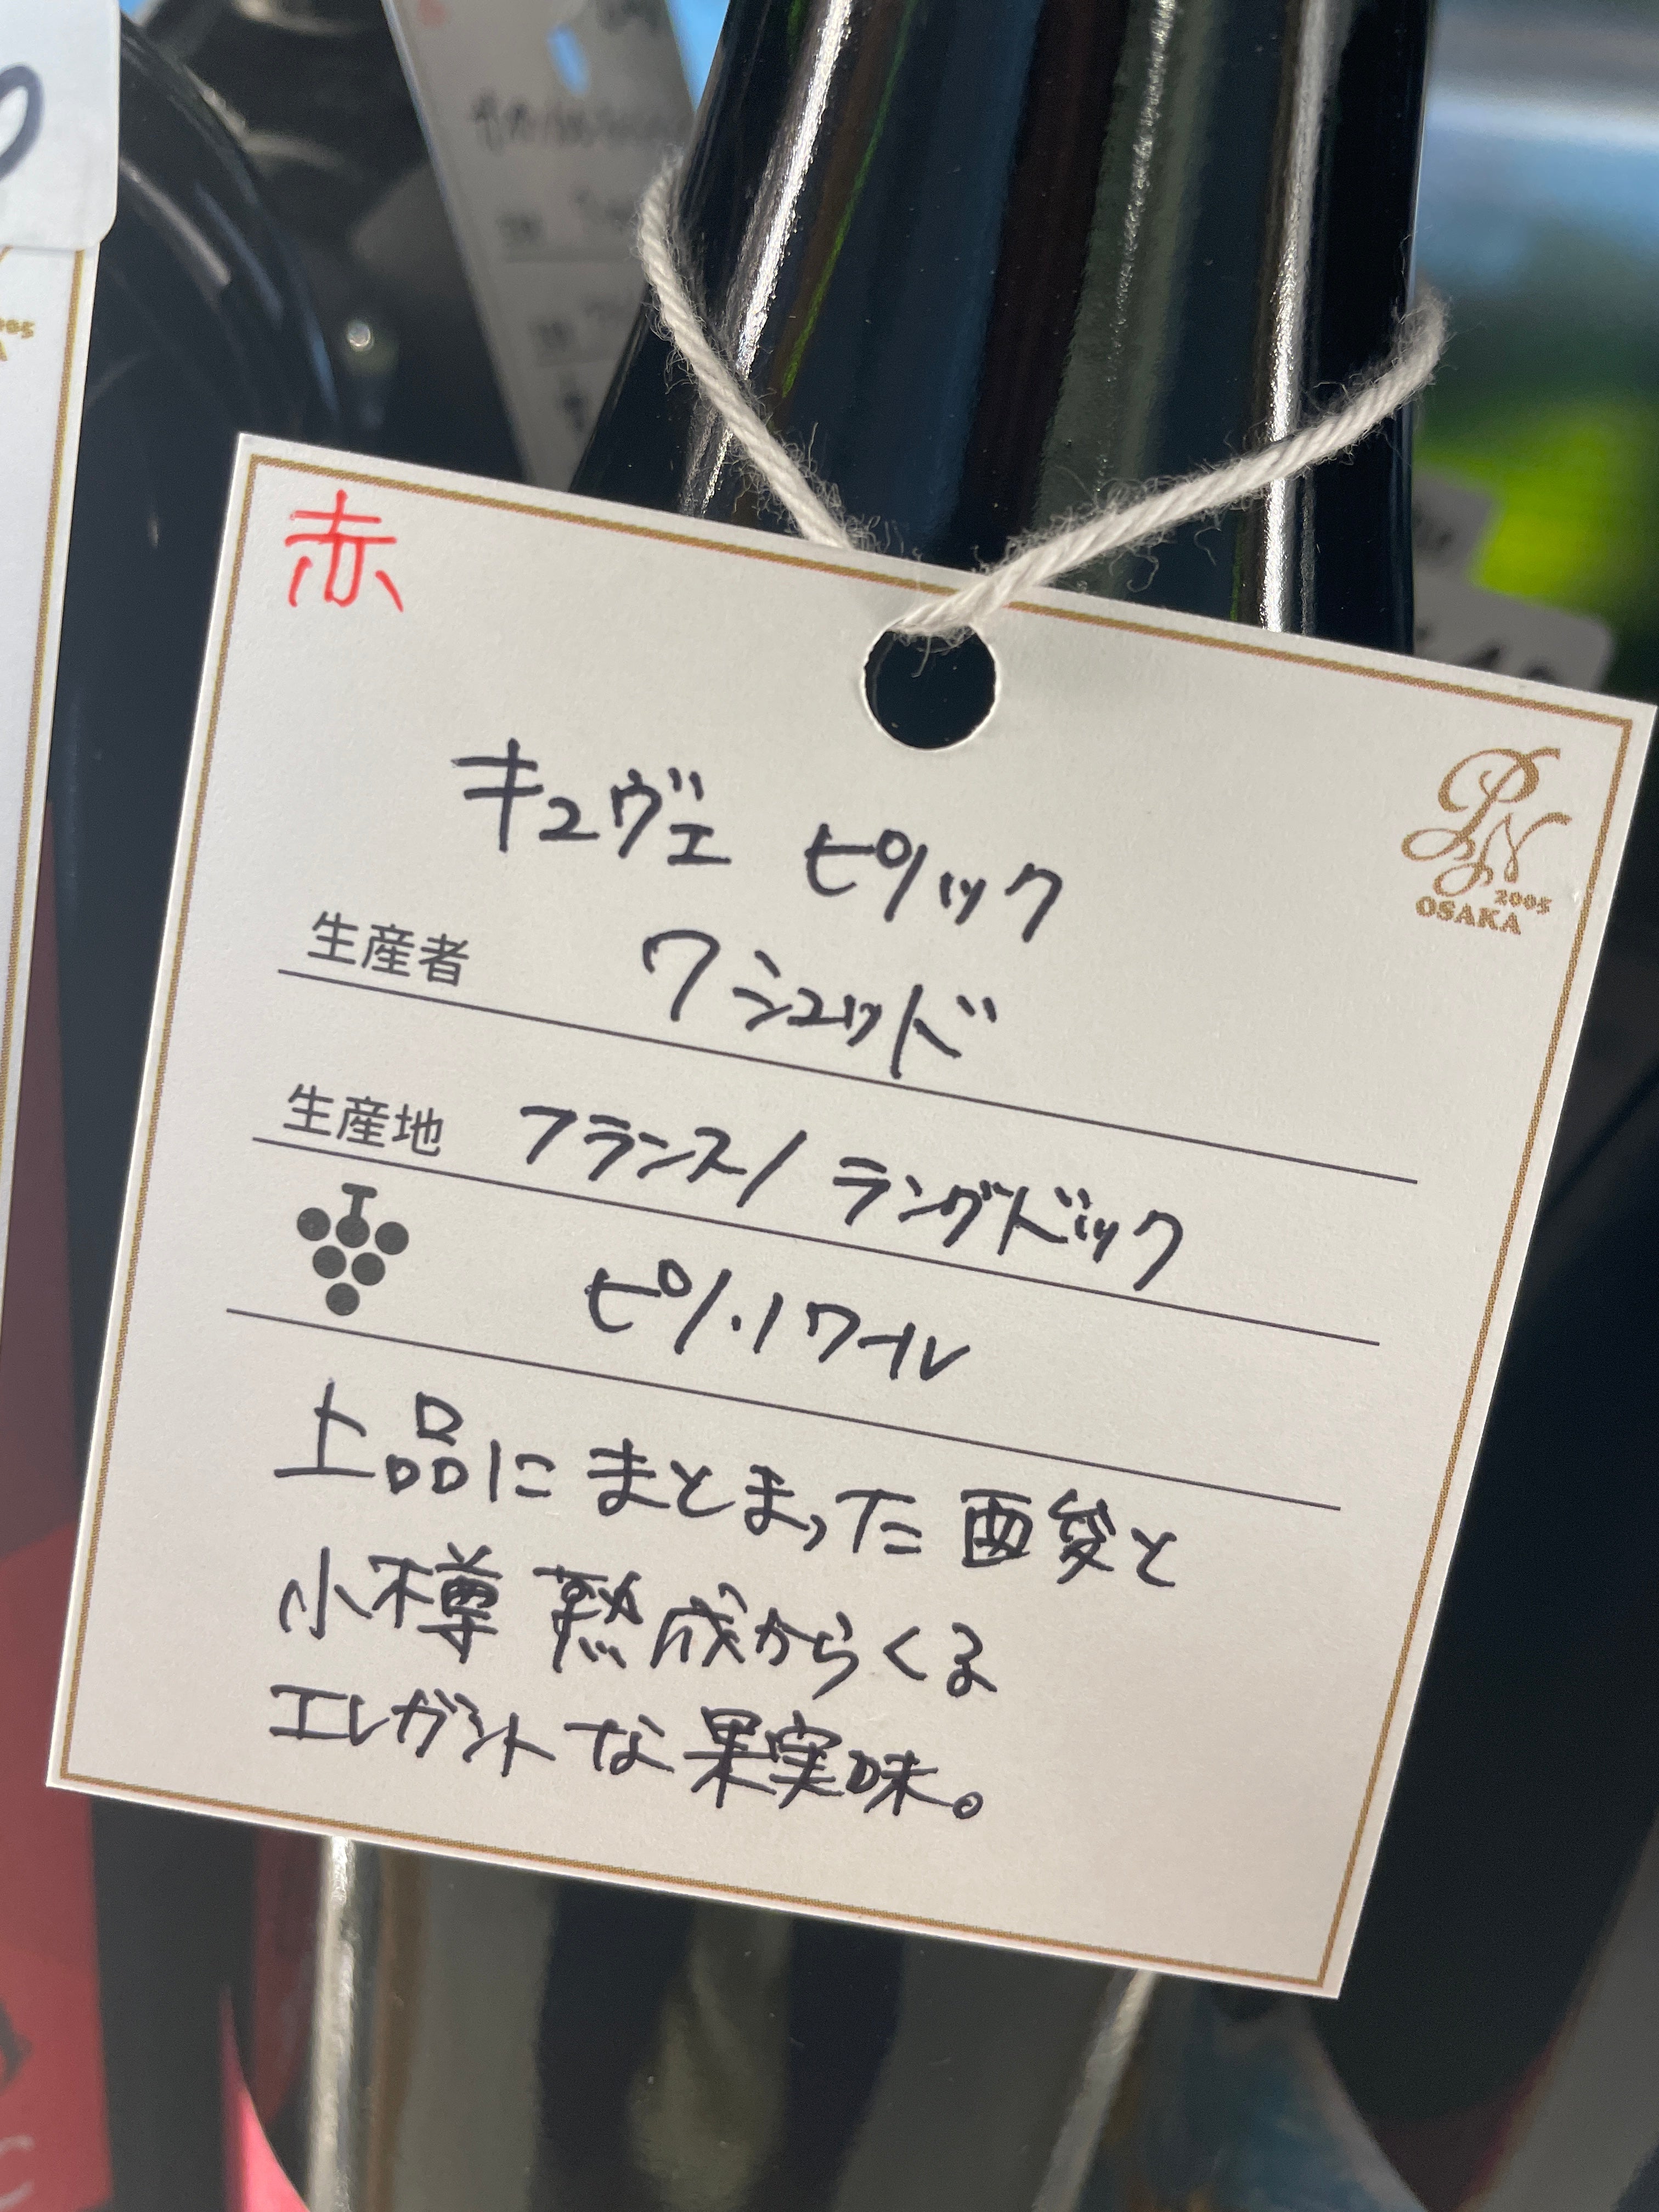 赤
キュヴェ ピリック
PN
2005
OSAKA
生産者 ワシュッド
生産地 フランス/ラングドック
ピノ・ノワール
上品にまとまった酉愛と
小樽熟成からくる
エレガントな果実味。